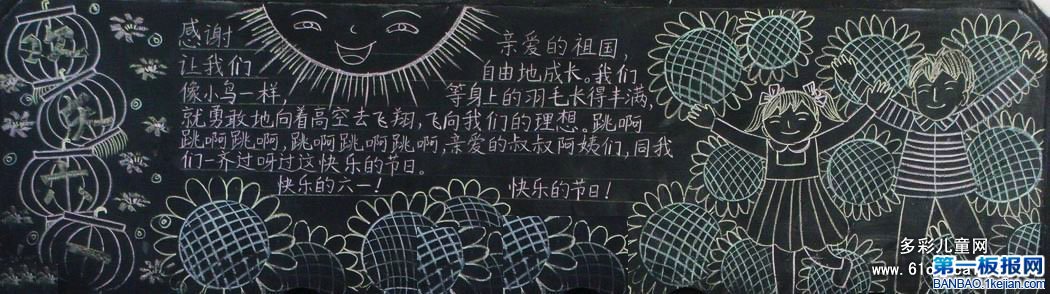 感谢 亲爱的祖国,
让我们 自由地成长。我们
像小鸟一样, 等身上的羽毛长得丰满,
就勇敢地向着高空去飞翔,飞向我们的理想。跳啊
跳啊跳啊,跳啊跳啊跳啊,亲爱的叔叔阿姨们,同我
们一齐过呀过这快乐的节日。
快乐的六一! 快乐的节日!
多彩儿童网
第一板报网
BANBAO.1kejian.com